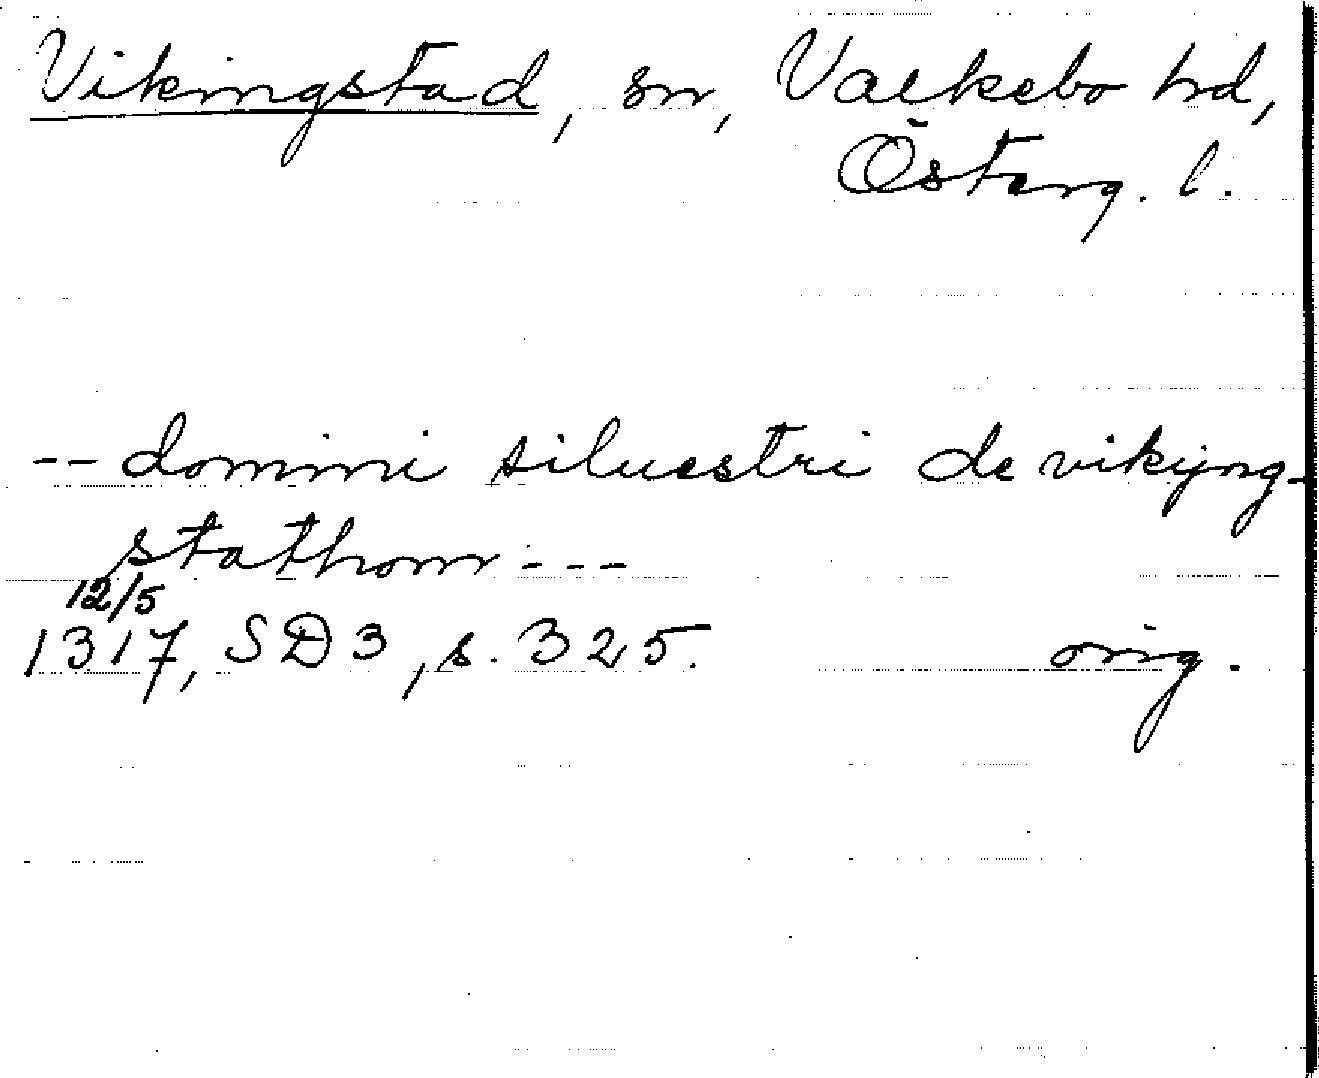 Vikingstad, sn, Valkebo hd,
Österg. l.
-- domini siluestri de vikijng-
stathom ---
12/5
1317, SD 3, s. 325. orig.